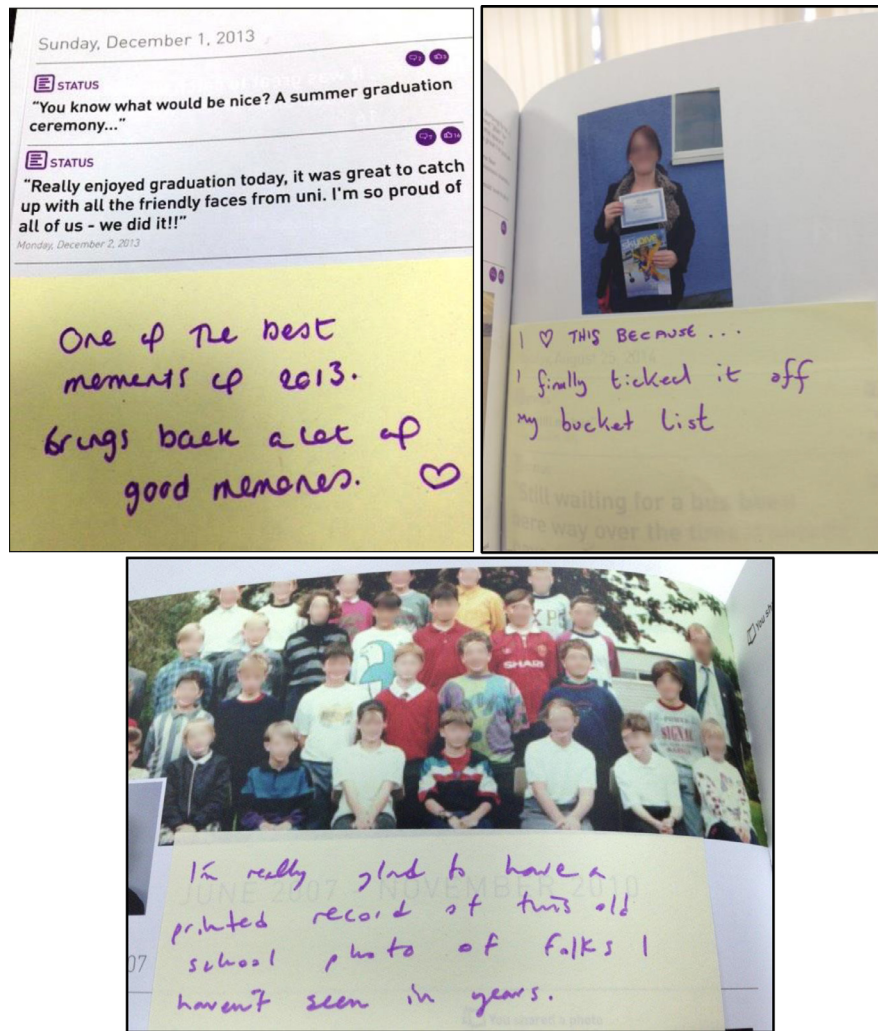 Sunday, December 1, 2013
STATUS
"You know what would be nice? A summer graduation
ceremony..."
STATUS
"Really enjoyed graduation today, it was great to catch
up with all the friendly faces from uni. I'm so proud of
all of us - we did it!!"
Monday, December 2, 2013
One of The best
moments of 2013.
Brings back a lot of
good memories. ♡
I ♡ THIS BECAUSE...
I finally ticked it off
my bucket list
"Still waiting for a bus been
here way over the time
XPS
SHARP
SIGNAL
You sh
I'm really glad to have a
JUNE 2007 NOVEMBER 2010
printed record of this old
school photo of folks I
07
haven't seen in years.
You shared a photo